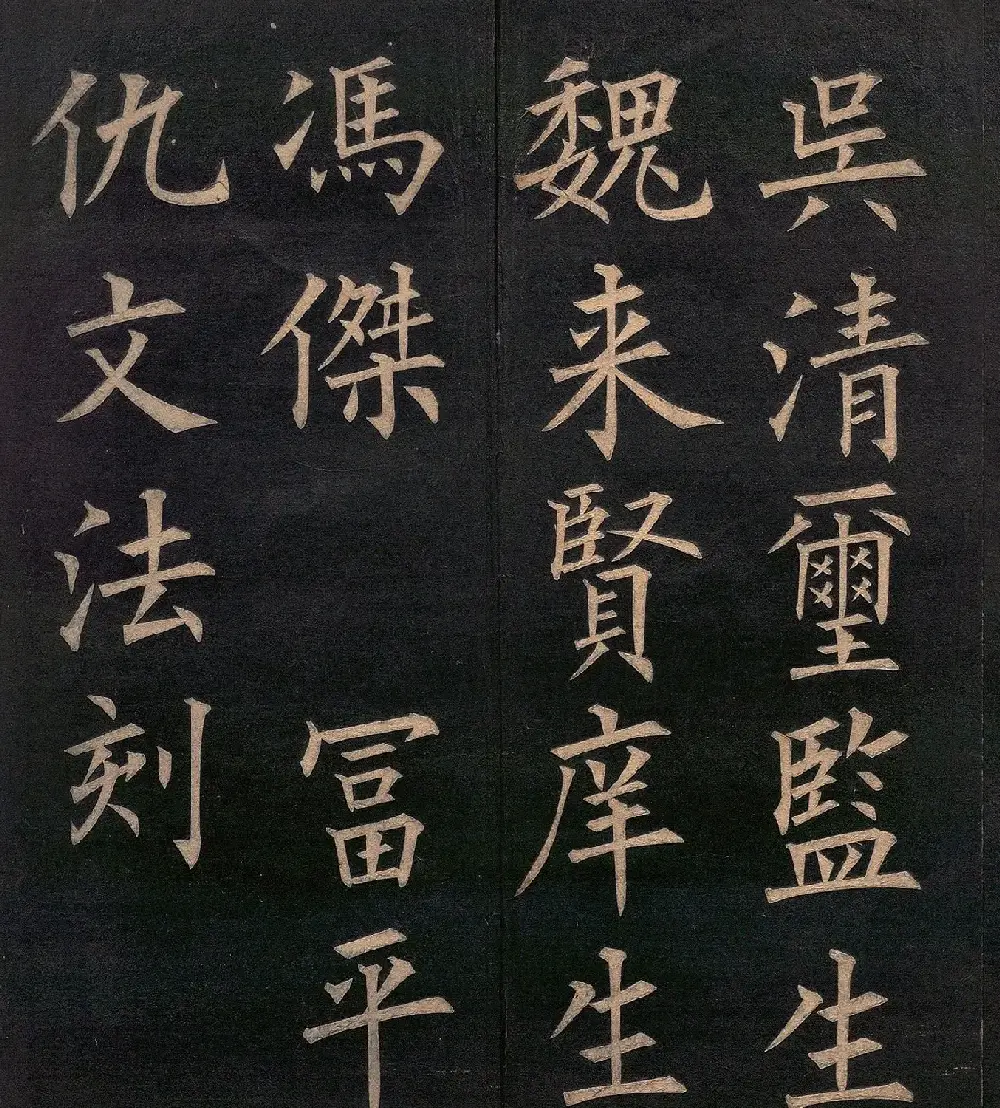 吳清璽監生
魏来賢庠生
馮傑 冨平
仇文法刻